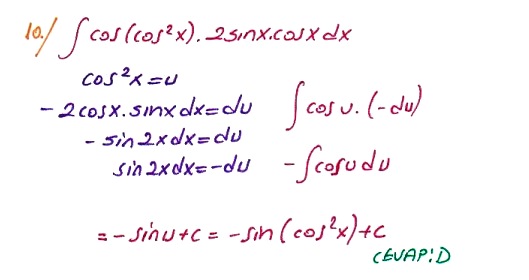 10./ ∫cos(cos²x).2sinx.cosxdx
cos²x=u
-2cosx.sinxdx=du
∫cosu.(-du)
-sin2xdx=du
sin2xdx=-du
-∫cosudu
=-sinu+c=-sin(cos²x)+c
CEVAP:D